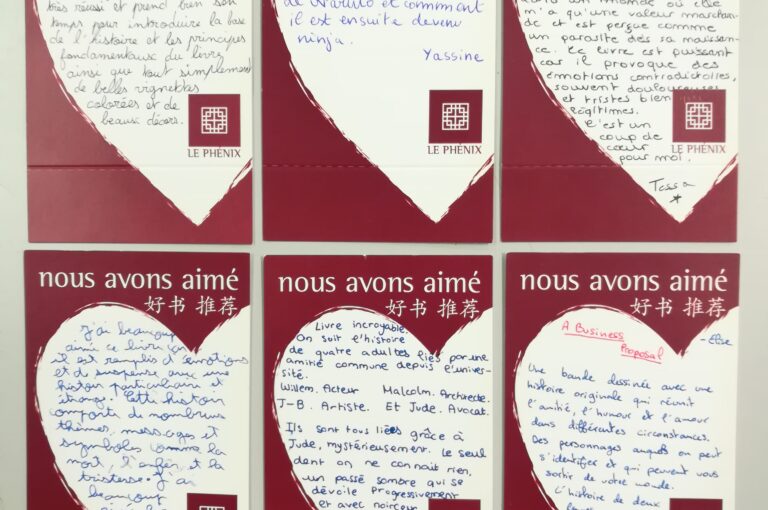 très réussi et prend bien son
temps pour introduire la base
de l'histoire et les principes
fondamentaux du livre
ainsi que tout simplement
de belles vignettes
colorées et de
beaux décors.
LE PHÉNIX
de Naruto et comment
il est ensuite devenu
ninja.
Yassine
LE PHÉNIX
dans un monde où elle
n'a qu'une valeur marchan-
de et est perçue comme
un parasite dès sa naissan-
ce. Le livre est puissant
car il provoque des
émotions contradictoires,
souvent douloureuses
et tristes bien
légitimes.
C'est un
coup de
cœur
pour moi.
LE PHÉNIX
Tessa
nous avons aimé
好书 推荐
J'ai beaucoup
aimé ce livre car
il est remplis d'émotions
et du suspense avec une
histoir particulière et
étrange. Cette histoir
comporte de nombreux
thèmes, messages et
symboles comme la
mort, l'enfer, et la
tristesse. J'ai
beaucoup
nous avons aimé
好书 推荐
Livre incroyable.
On suit l'histoire
de quatre adultes liés par une
amitié commune depuis l'univer-
sité.
Willem. Acteur Malcolm. Architecte.
J-B. Artiste. Et Jude. Avocat.
Ils sont tous liées grâce à
Jude, mystérieusement. Le seul
dont on ne connait rien,
un passé sombre qui se
dévoile progressivement
et avec noirceur
nous avons aimé
好书 推荐
A Business
Proposal
- Elise
Une bande dessinée avec une
histoire originale qui réunit
l'amitié, l'humour et l'amour
dans différentes circonstances.
Des personnages auxquels on peut
s'identifier et qui peuvent vous
sortir de votre monde.
L'histoire de deux